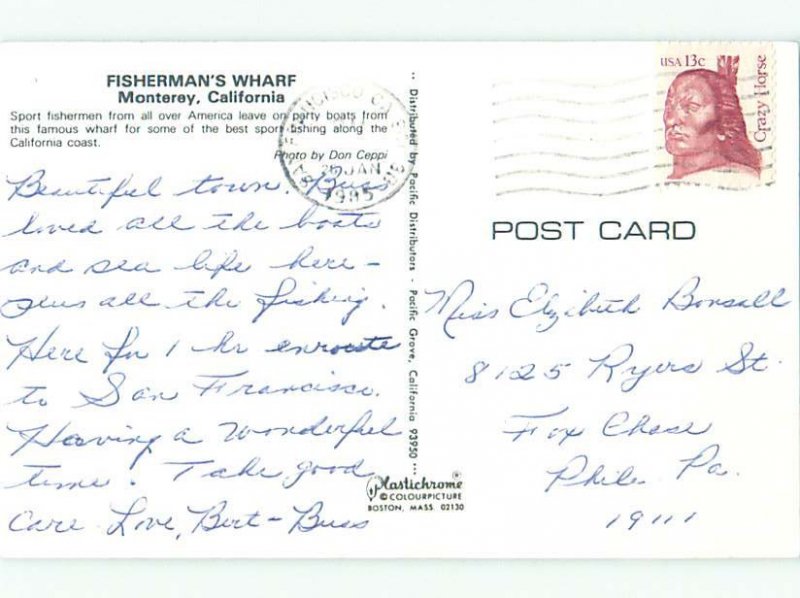 FISHERMAN'S WHARF
Monterey, California
Sport fishermen from all over America leave on party boats from
this famous wharf for some of the best sport fishing along the
California coast.
Photo by Don Ceppi
Beautiful town. Buss
loved all the boats
and sea life here -
plus all the fishing.
Here for 1 hr enroute
to San Francisco.
Having a wonderful
time. Take good
care. Love, Bert - Buss
·· Distributed by Pacific Distributors - Pacific Grove, California 93950 ···
Plastichrome®
© COLOURPICTURE
BOSTON, MASS. 02130
SAN FRANCISCO CA
JAN
1985
USA 13c
Crazy Horse
POST CARD
Miss Elizibeth Bonsall
8125 Ryers St.
Fox Chase
Phila Pa.
19111